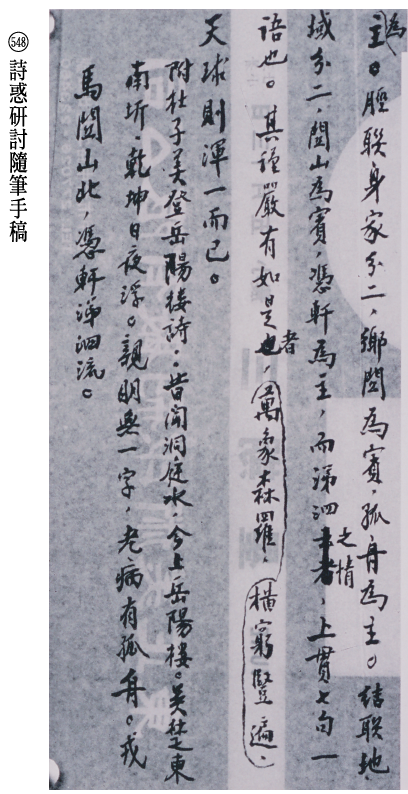 為主。脛聯身家分二,鄉關為賓,孤舟為主。結聯地
域分二,關山為賓,憑軒為主,而涕泗之情,上貫七句一
語也。其謹嚴有如是者,萬象森羅,橫窮豎遍,
天球則渾一而已。
附杜子美登岳陽樓詩:昔聞洞庭水,今上岳陽樓。吳楚東
南坼,乾坤日夜浮。親朋無一字,老病有孤舟。戎
馬關山北,憑軒涕泗流。
548 詩惑研討隨筆手稿